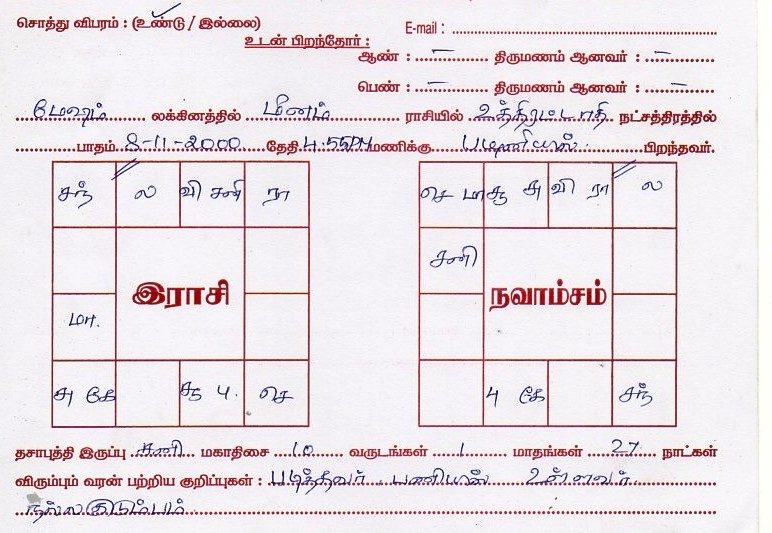 சொத்து விபரம் : (உண்டு / இல்லை) E-mail :
உடன் பிறந்தோர் :
ஆண் : – திருமணம் ஆனவர் : –
பெண் : – திருமணம் ஆனவர் : –
மேஷம் லக்கினத்தில் மீனம் ராசியில் உத்திரட்டாதி நட்சத்திரத்தில்
பாதம் 8-11-2000 தேதி 4.55PM மணிக்கு பிறந்தவர்.
சந் ல வி சனி ரா
செ மா சூ அ வி ரா ல
சனி
இராசி நவாம்சம்
மா.
அ கே சூ பு. செ
பு கே சந்
தசாபுத்தி இருப்பு சனி மகாதிசை 10 வருடங்கள் 1 மாதங்கள் 27 நாட்கள்
விரும்பும் வரன் பற்றிய குறிப்புகள் : படித்தவர் பணியில் உள்ளவர்
நல்ல குடும்பம்